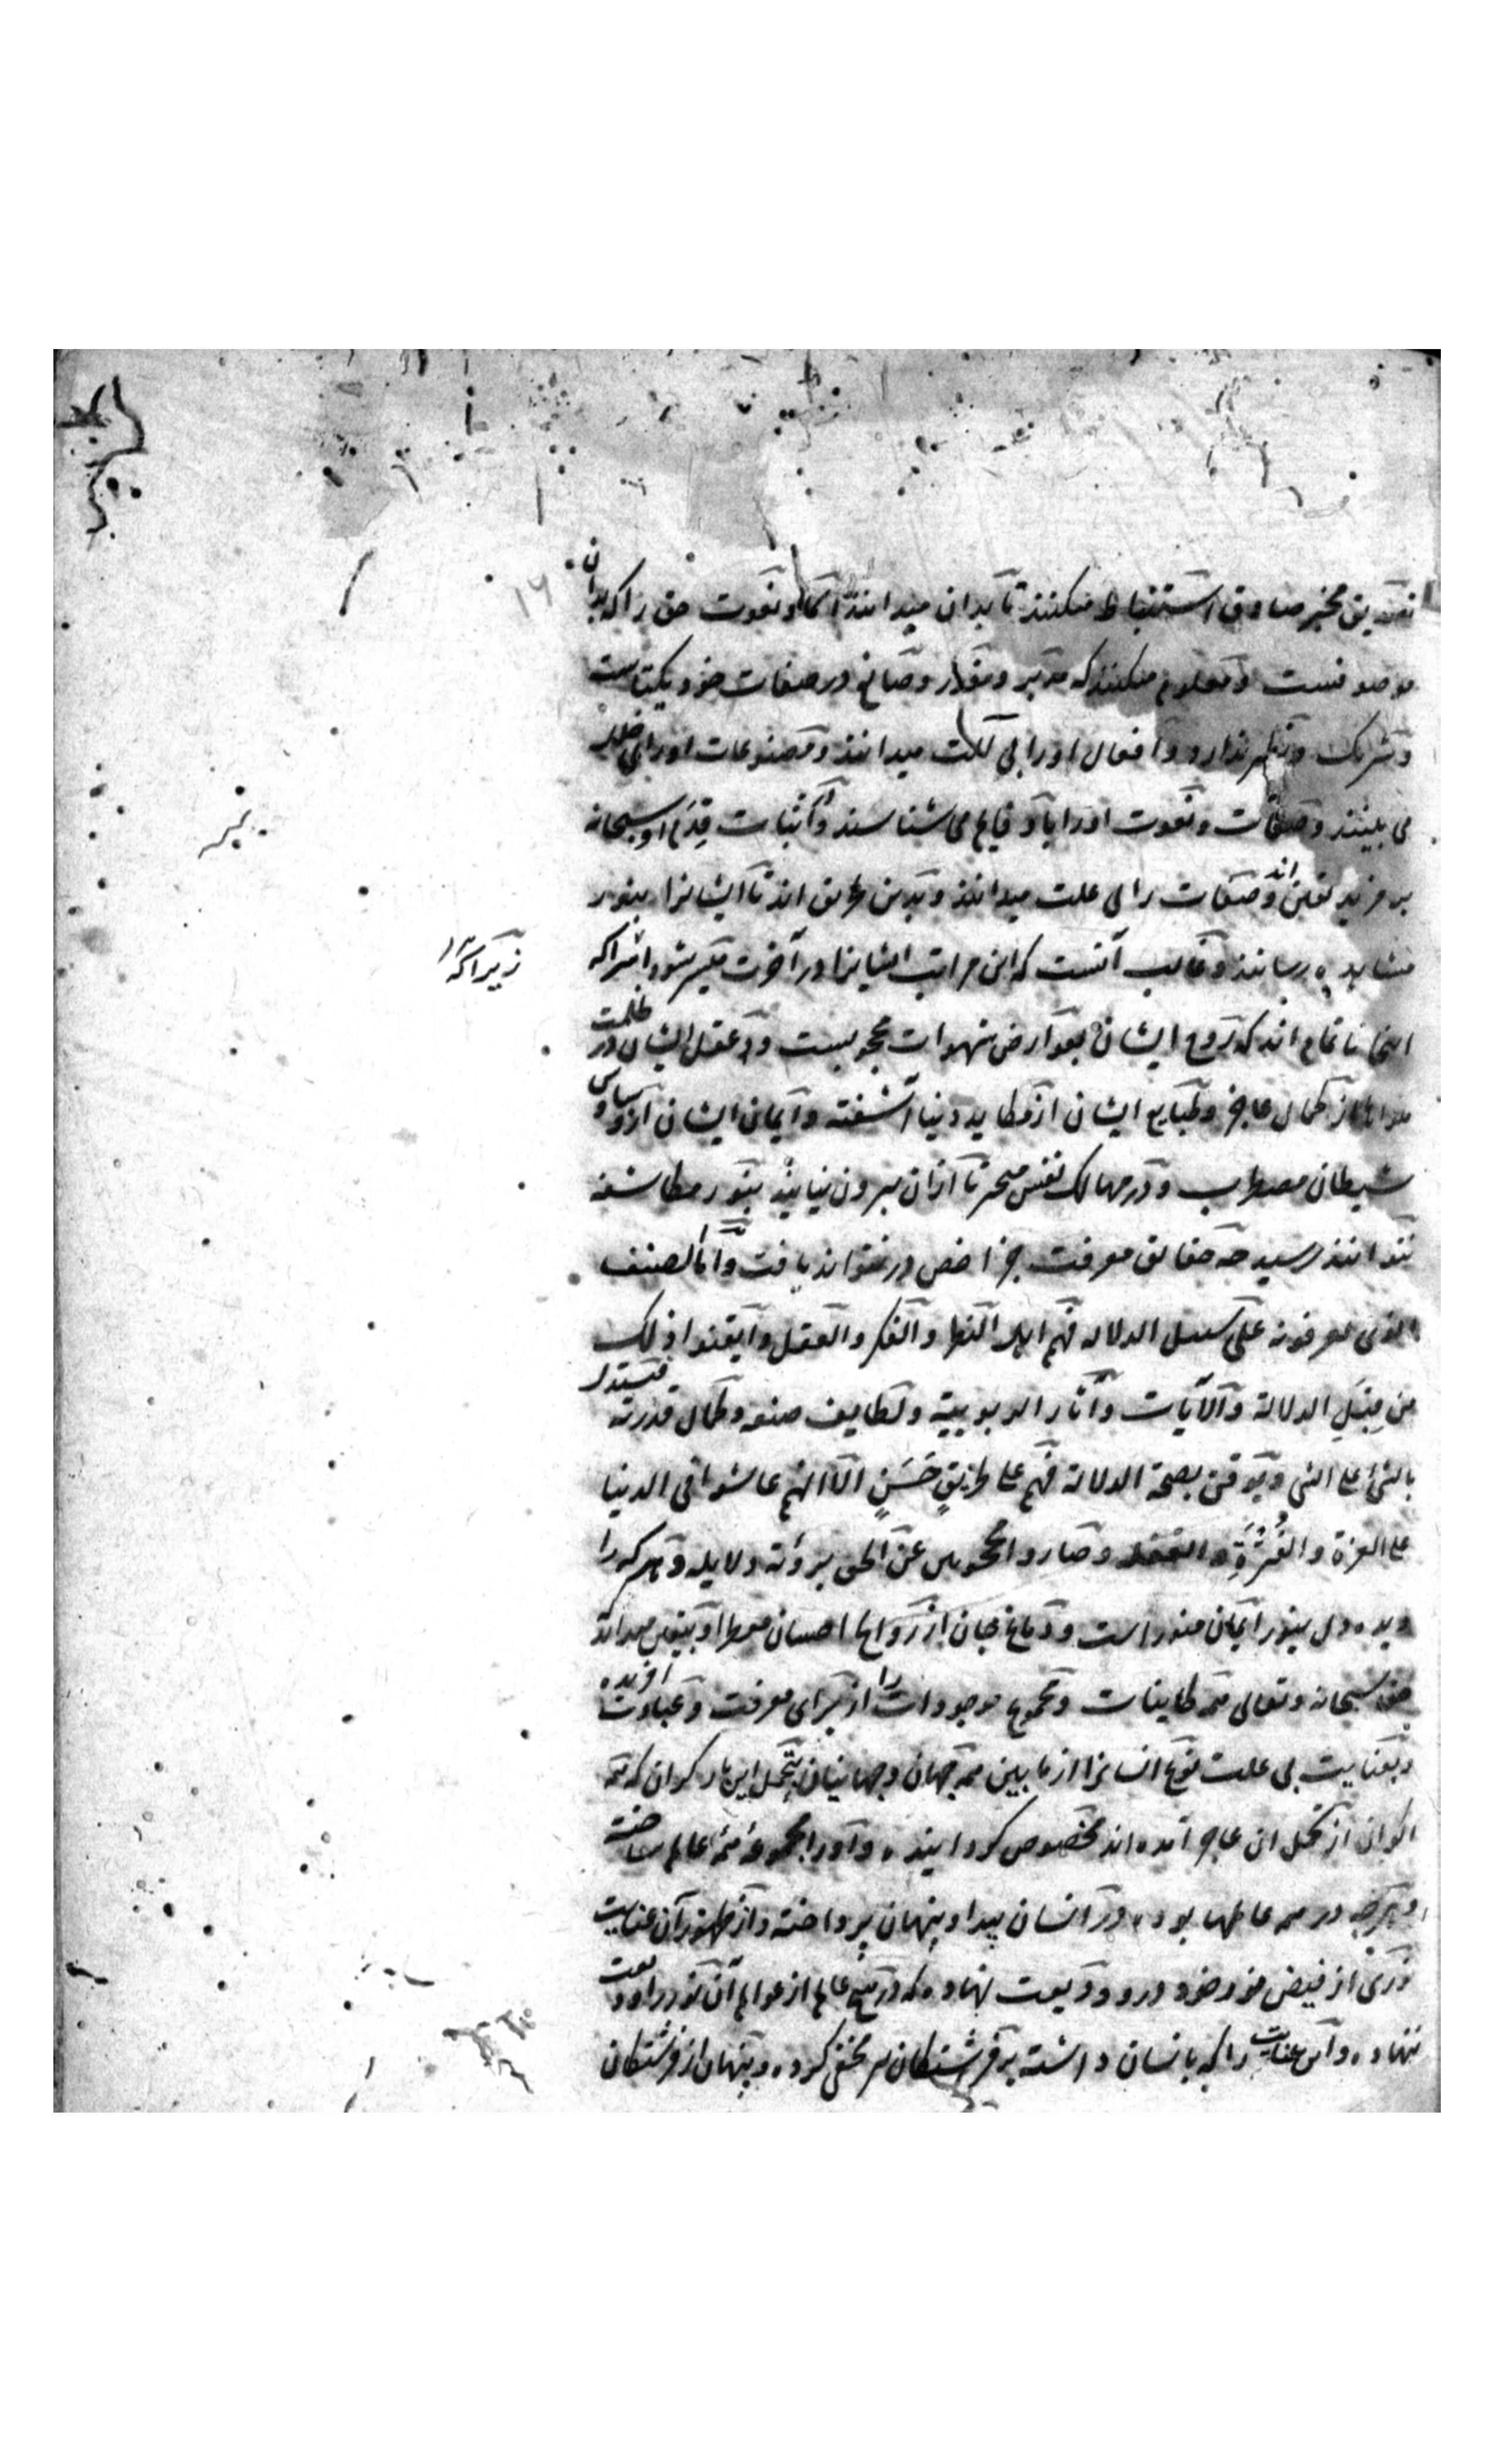 تصدیق مخبر صادق استنباط میکنند تا بدان میدانند اسما و نعوت حق را که بدان
موصوفست و معلوم میکنند که مدبر و مقدر و صانع در صفات خود یکتاست
و شریک و نظیر ندارد و افعال او را بی آلت میدانند و مصنوعات او را بی خلل
می بینند و صفات و نعوت او را باو قایم می شناسند و اثبات قدم او سبحانه
صفات را بی علت میدانند و بدین طریق اند تا ایشانرا بنور
مشاهده رسانند و غالب آنست که این مراتب ایشانرا در آخرت میسر شود
زیرا که
اینجا ناتمام اند که روح ایشان بعوارض شهوات محجوبست و عقل ایشان در ظلمت
از کمال عاجز و طبایع ایشان از مکاید دنیا آشفته و ایمان ایشان از وساوس
شیطان مضطرب و در مهالک نفس متحیر تا ازان بیرون نیایند بنور مکاشفه
نتوانند رسید چه حقایق معرفت جز اخص در نتواند یافت و اما الصنف
الذی یعرفونه علی سبیل الدلالة فهم اهل النظر والفکر والعقل وایقنوا ذلک
من قبل الدلالة والآیات وآثار الربوبیة ولطایف صنعه وکمال قدرته فیستدل
بالشئ علی الشئ ویوقن بصحة الدلالة فهم علی طریق حسن الا انهم عاشوا فی الدنیا
علی العزة و وصاروا محجوبین عن الحق برؤیة دلایله و هر که را
دیده دل بنور ایمان منور است و دماغ جان از روایح احسان معطر او بیقین میداند
حق سبحانه وتعالی همه کاینات و مجموع موجودات را از برای معرفت و عبادت آفریده
و بعنایت بی علت نوع انسانرا از ما بین همه جهان و جهانیان بتحمل این بار گران که همه
اکوان از تحمل آن عاجز آمده اند مخصوص گردانیده و او را مجموعه همه عالم ساخته
و هرچه در همه عالمها بوده در انسان پیدا و پنهان پرداخته و از ظهور آن عنایت
نوری از فیض نور خود درو ودیعت نهاده که در هیچ عالم از عوالم آن نور را ودیعت
ننهاده و آن عنایت را که بانسان داشته بر فرشتگان مخفی کرده و پنهان از فرشتگان